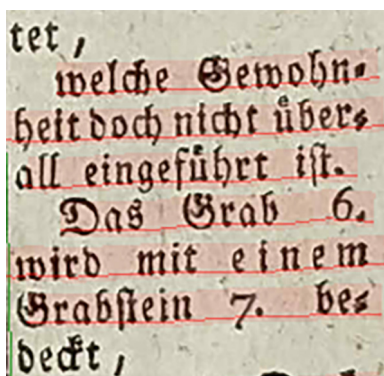 tet,
welche Gewohn⸗
heit doch nicht über⸗
all eingeführt iſt.
Das Grab 6.
wird mit einem
Grabſtein 7. be⸗
deckt,